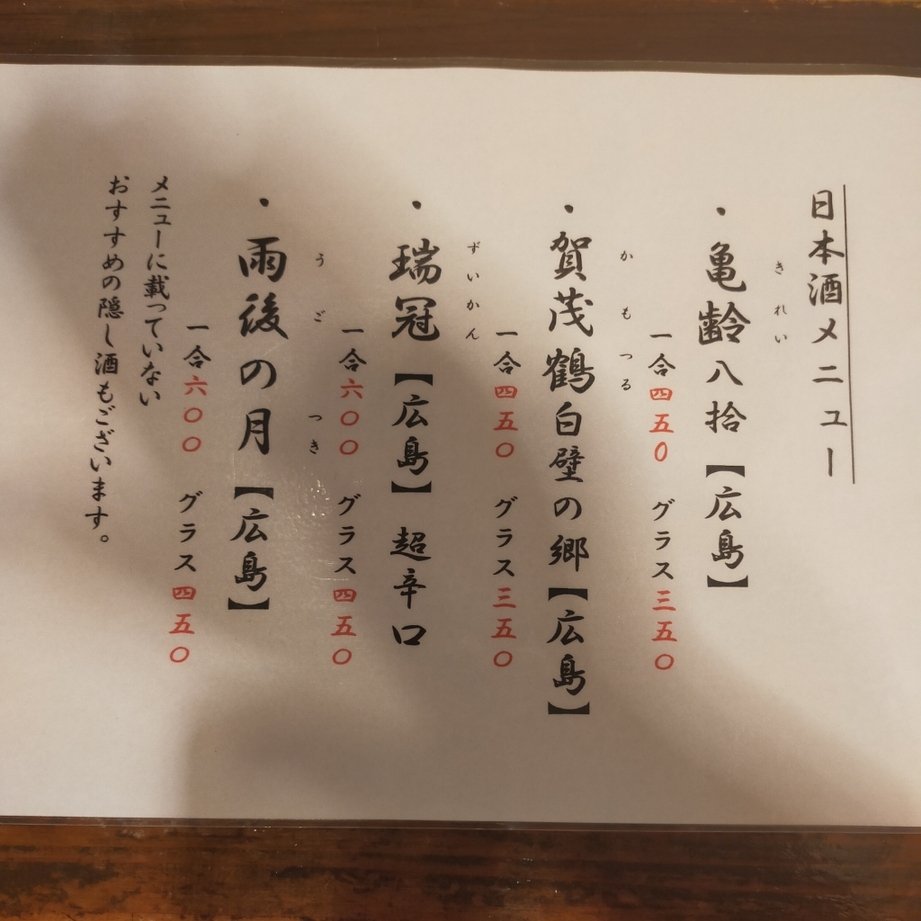 日本酒メニュー
きれい
・亀齢八拾【広島】
一合四五〇 グラス三五〇
かもつる
・賀茂鶴白壁の郷【広島】
一合四五〇 グラス三五〇
ずいかん
・瑞冠【広島】超辛口
一合六〇〇 グラス四五〇
うご つき
・雨後の月【広島】
一合六〇〇 グラス四五〇
メニューに載っていない
おすすめの隠し酒もございます。